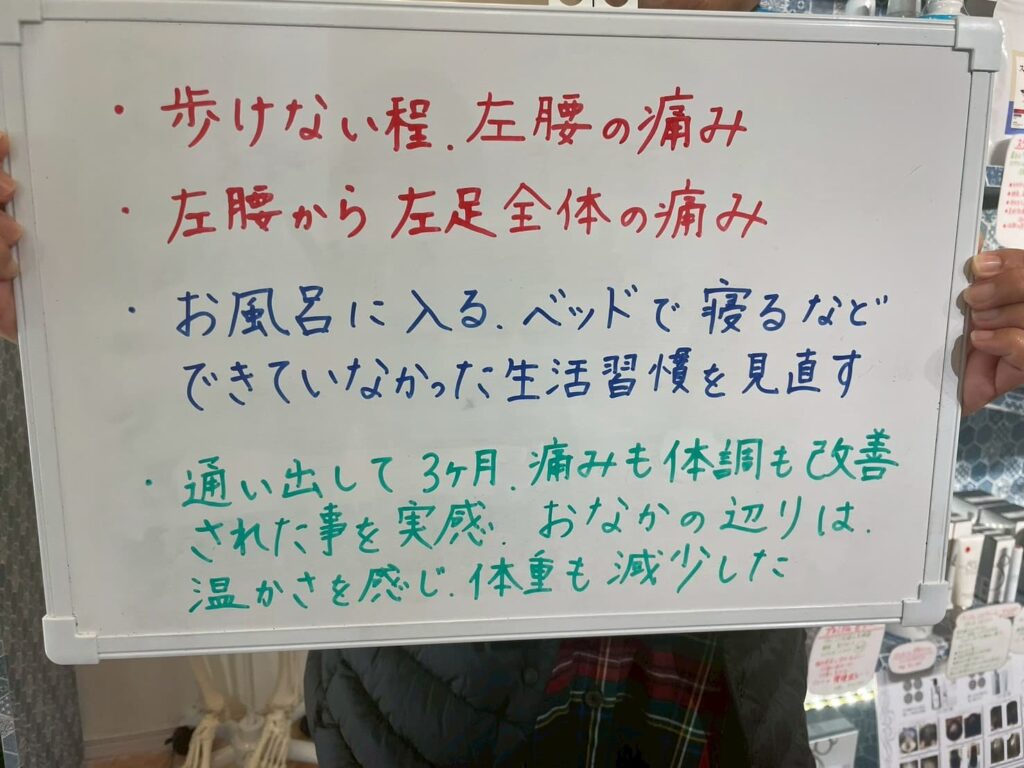 ・歩けない程、左腰の痛み
・左腰から左足全体の痛み
・お風呂に入る、ベッドで寝るなど
できていなかった生活習慣を見直す
・通い出して3ヶ月、痛みも体調も改善
された事を実感、おなかの辺りは、
温かさを感じ、体重も減少した